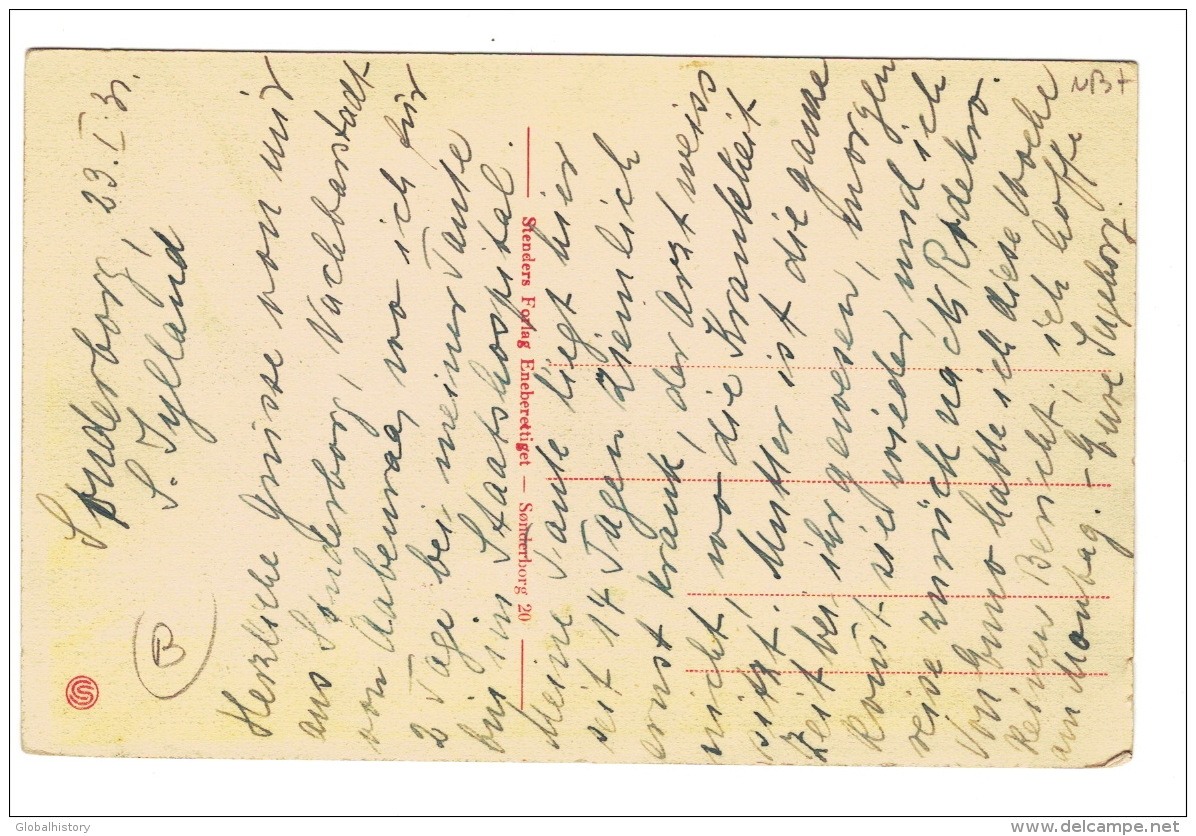 Sønderborg, 23.I.31.
S. Jylland
Herzliche Grüsse von mir
aus Sønderborg, Nachbarstadt
von Aabenraa, wo ich für
2 Tage bei meiner Tante
bin im Staatshospital.
Stenders Forlag Eneberettiget — Sønderborg 20
Meine Tante liegt hier
seit 14 Tagen ziemlich
ernst krank, der Arzt weiss
nicht, wo die Krankheit
sitzt, Mutter ist die ganze
Zeit bei ihr gewesen, morgen
kommt sie wieder, und ich
reise zurück nach Rødekro.
Von hatte ich diese Woche
keinen Bericht, ich hoffe
am Montag. – Eure Ingeborg.
B
Globalhistory
delcampe.net